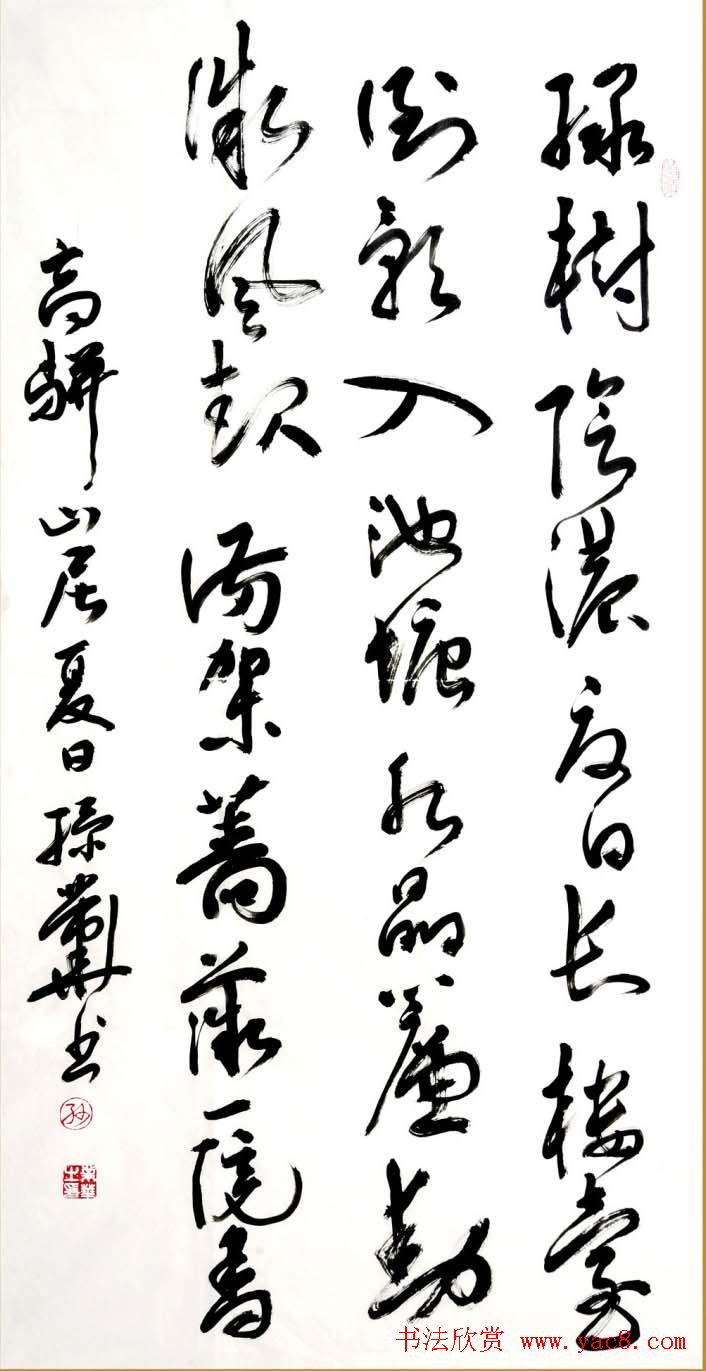 綠樹陰濃夏日長樓臺
倒影入池塘水晶簾動
微風起滿架薔薇一院香
高駢山居夏日孫書
孙
书法欣赏 www.yac8.com